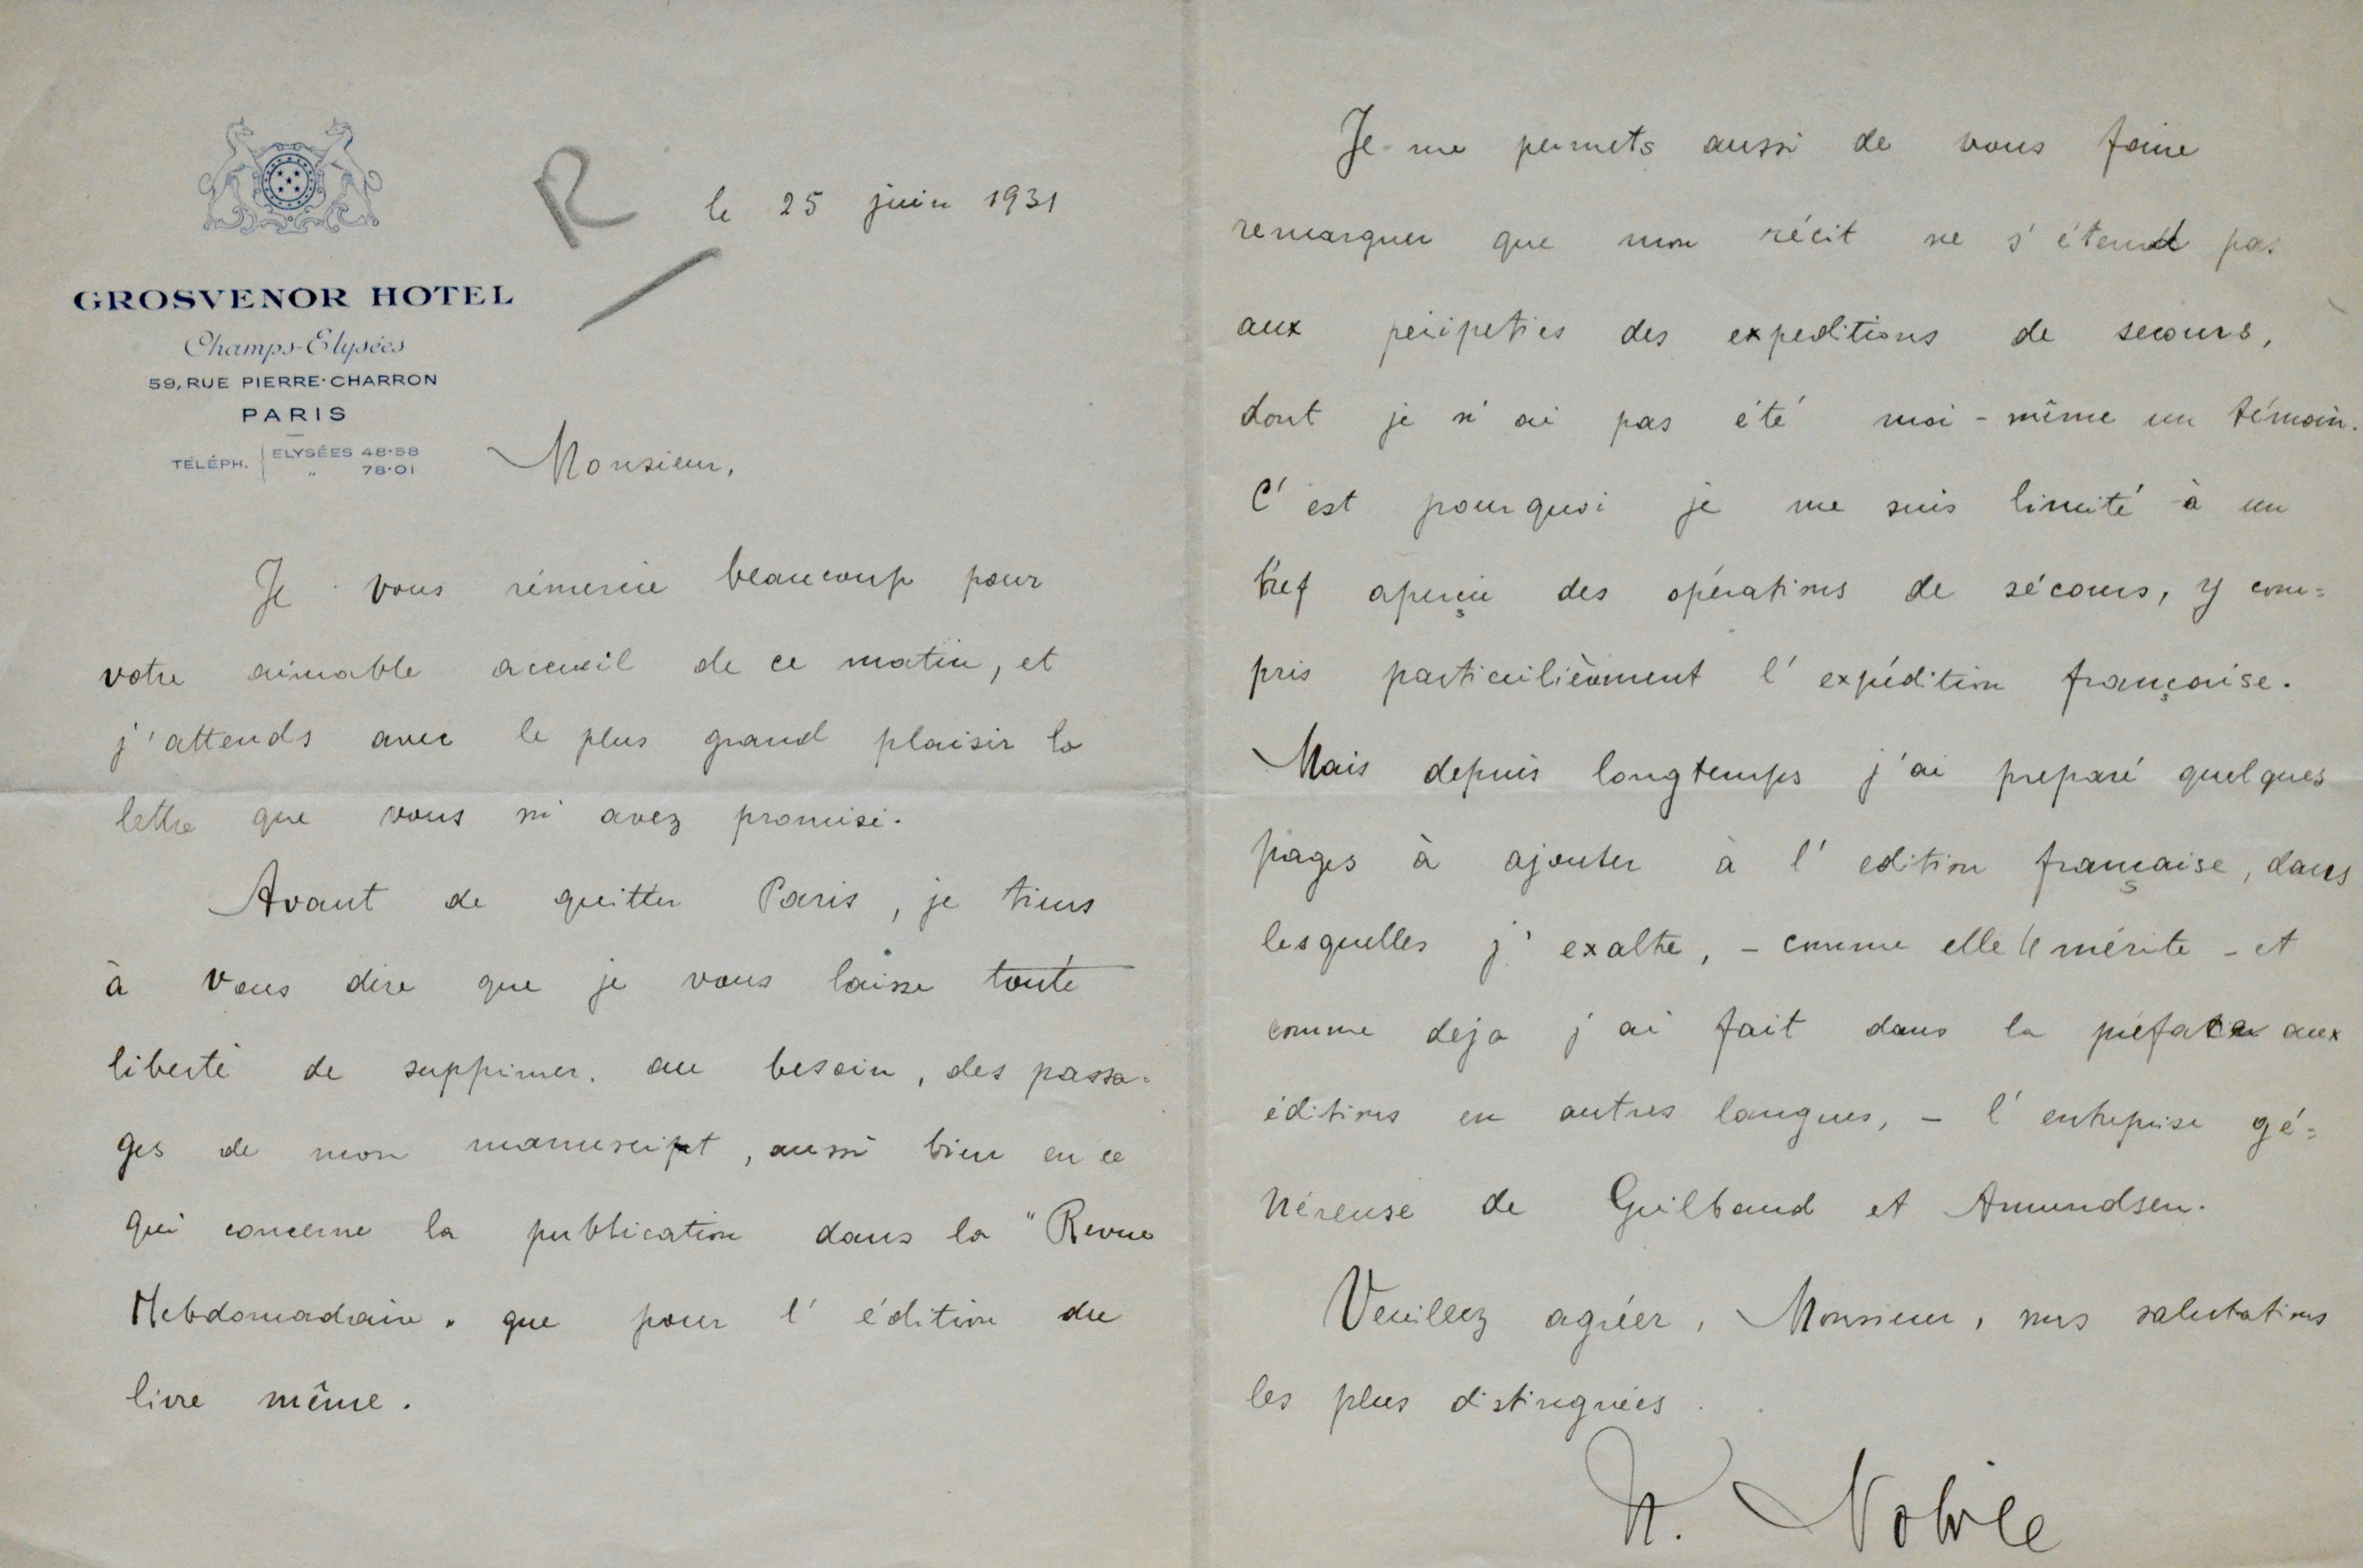 GROSVENOR HOTEL
Champs-Elysées
59, RUE PIERRE-CHARRON
PARIS
TÉLÉPH. ELYSÉES 48-58
" 78-01
R
le 25 juin 1931
Monsieur,
Je vous rémercie beaucoup pour
votre aimable accueil de ce matin, et
j'attends avec le plus grand plaisir la
lettre que vous m'avez promise.
Avant de quitter Paris, je tiens
à vous dire que je vous laisse toute
liberté de supprimer, au besoin, des passa=
ges de mon manuscript, aussi bien en ce
qui concerne la publication dans la "Revue
Hebdomadaire" que pour l'édition du
livre même.
Je me permets aussi de vous faire
remarquer que mon récit ne s'étend pas
aux péripeties des expeditions de secours,
dont je n'ai pas été moi-même un témoin.
C'est pourquoi je me suis limité à un
bref aperçu des opérations de sécours, y com=
pris particulièrement l'expédition française.
Mais depuis longtemps j'ai preparé quelques
pages à ajouter à l'edition française, dans
lesquelles j'exalte, - comme elle le mérite - et
comme deja j'ai fait dans la préface aux
éditions en autres langues, - l'entreprise gé=
néreuse de Guilbaud et Amundsen.
Veuillez agréer, Monsieur, mes salutations
les plus distinguées.
U. Nobile